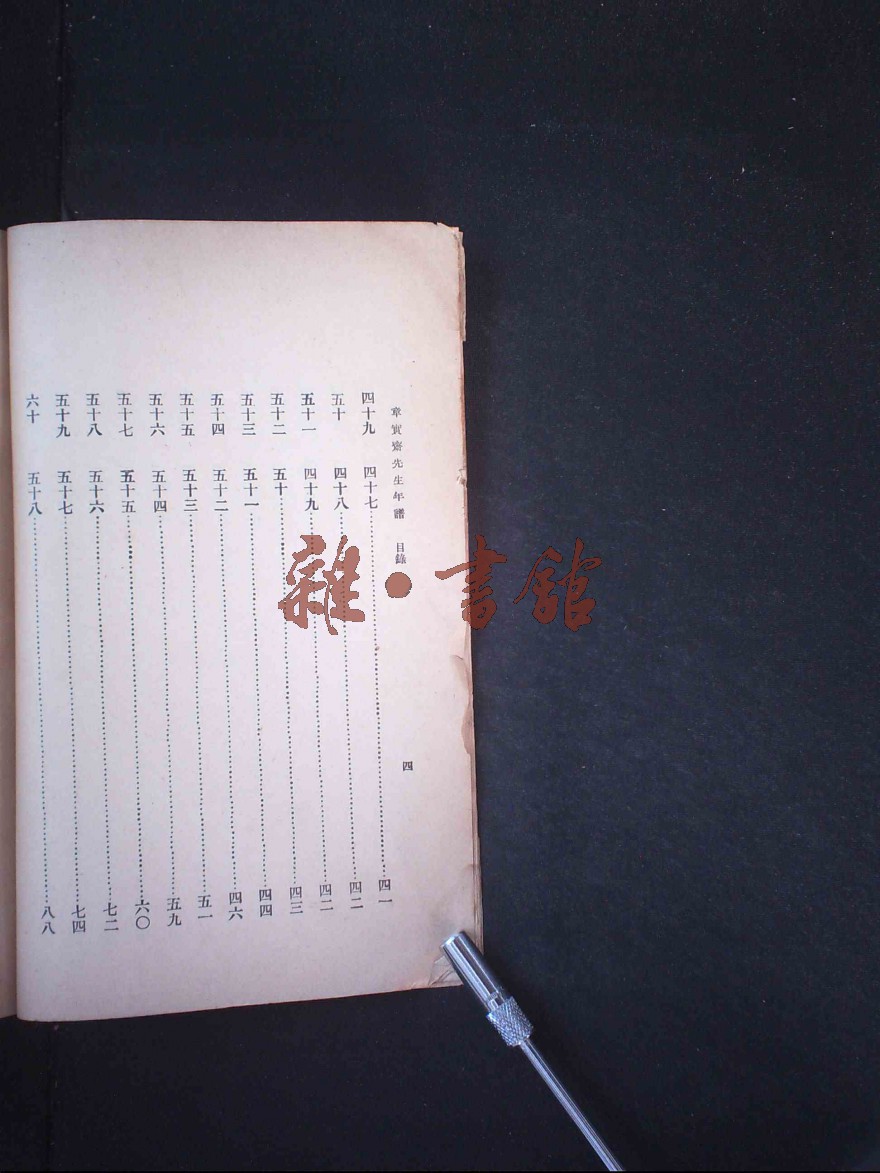 章實齋先生年譜　目錄　四
四十九　四十七……四一
五十　四十八……四二
五十一　四十九……四二
五十二　五十……四三
五十三　五十一……四四
五十四　五十二……四六
五十五　五十三……五一
五十六　五十四……五九
五十七　五十五……六〇
五十八　五十六……七二
五十九　五十七……七四
六十　五十八……八八
雜·書館